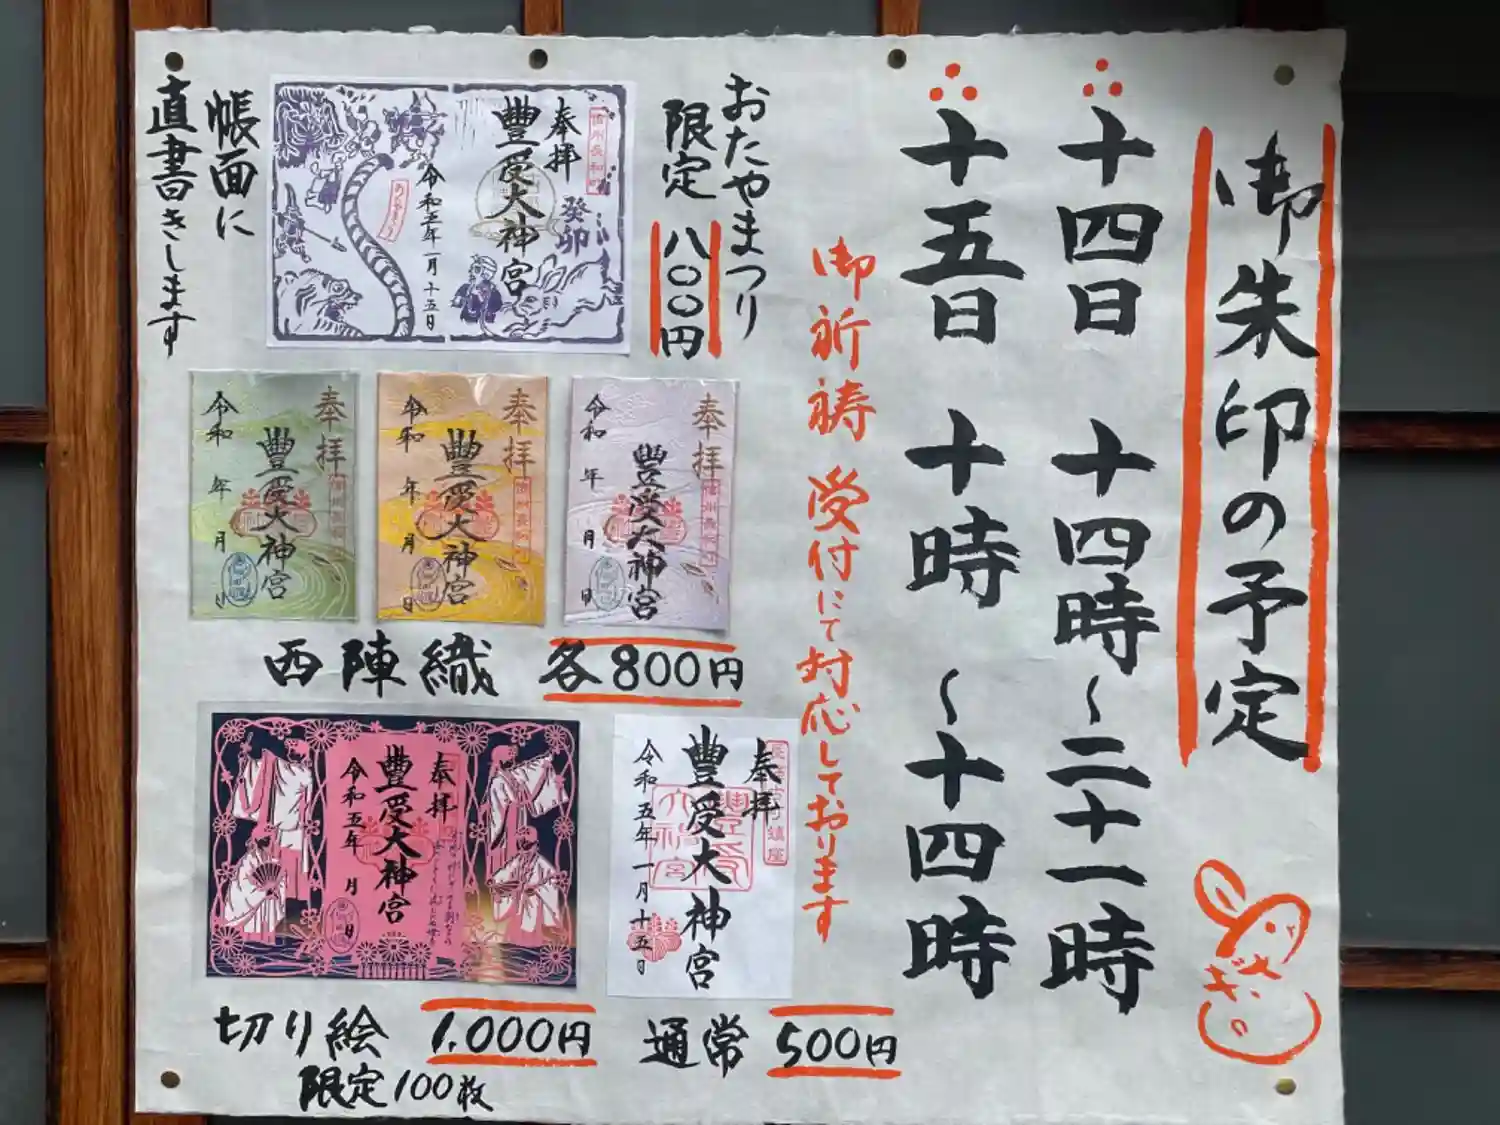 御朱印の予定
十四日 十四時〜二十一時
十五日 十時〜十四時
御祈祷受付にて対応しております
おたやまつり
限定 八〇〇円
奉拝
信州長和町
癸卯
豊受大神宮
令和五年一月十五日
おたやまつり
帳面に
直書きします
奉拝
豊受大神宮
令和 年 月 日
奉拝
豊受大神宮
令和 年 月 日
奉拝
豊受大神宮
令和 年 月 日
西陣織 各800円
奉拝
豊受大神宮
令和五年 月 日
切り絵 1,000円
限定100枚
奉拝
豊受大神宮
令和五年一月十五日
通常 500円